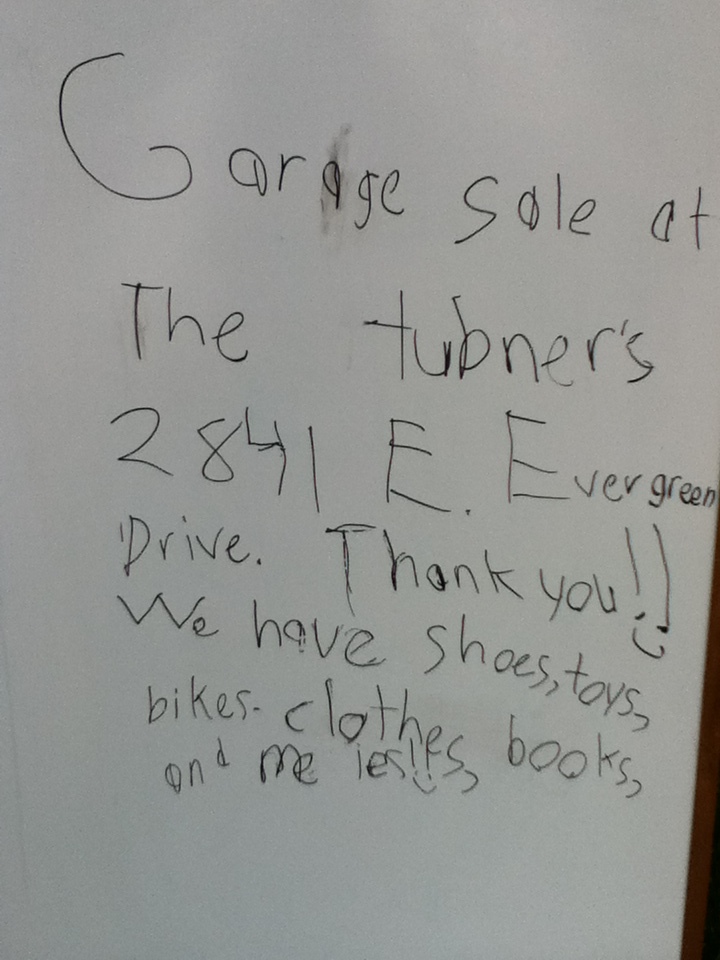 Garage sale at
The tubner's
2841 E. Evergreen
Drive. Thank you!!
We have shoes, toys,
bikes. clothes, books,
and me ies!!